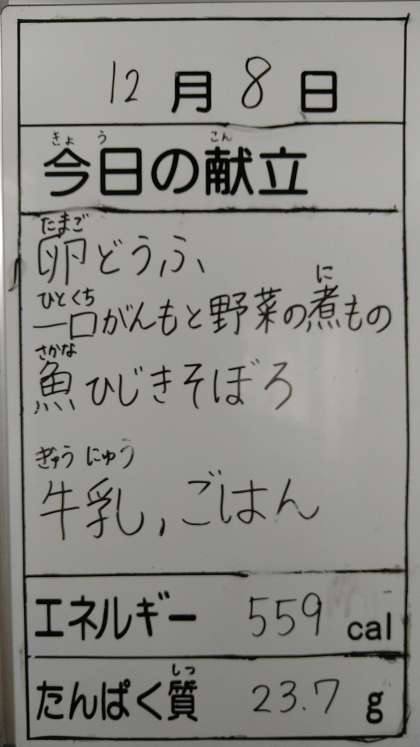 12月8日
きょう こん
今日の献立
たまご
卵どうふ
ひとくち に
一口がんもと野菜の煮もの
さかな
魚ひじきそぼろ
ぎゅうにゅう
牛乳,ごはん
エネルギー 559 cal
しつ
たんぱく質 23.7 g